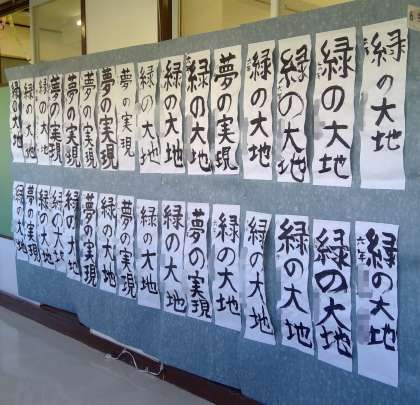 緑の大地
緑の大地
緑の大地
緑の大地
夢の実現
緑の大地
緑の大地
緑の大地
夢の実現
夢の実現
夢の実現
夢の実現
夢の実現
緑の大地
緑の大地
緑の大地
緑の大地
六年
緑の大地
緑の大地
緑の大地
緑の大地
夢の実現
緑の大地
緑の大地
夢の実現
緑の大地
夢の実現
緑の大地
緑の大地
緑の大地
夢の実現
緑の大地